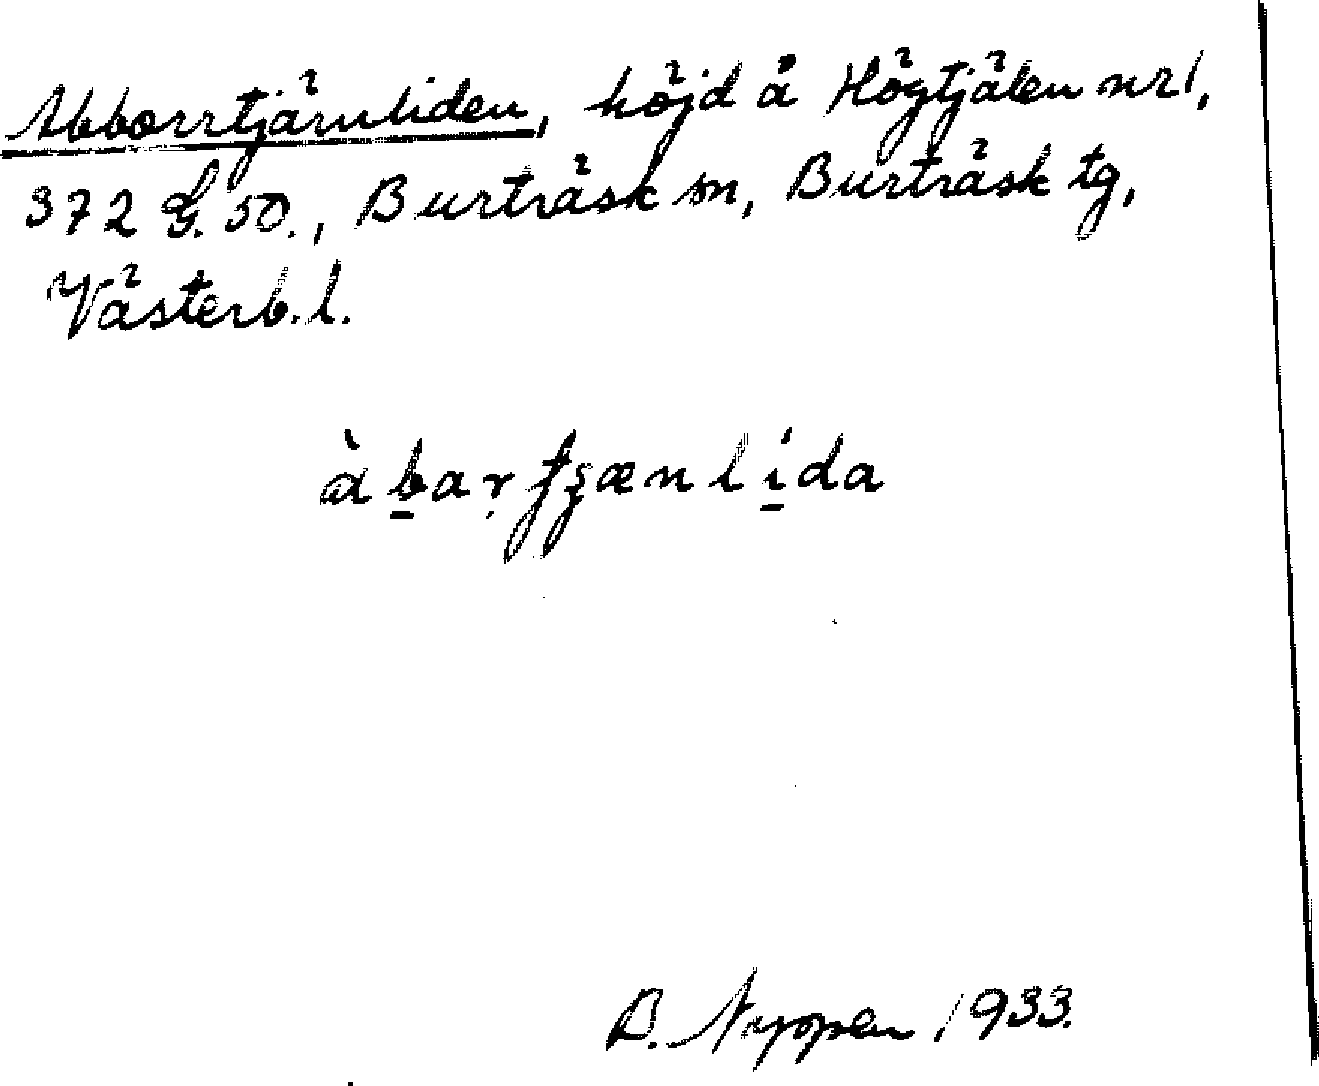 Abborrtjärnliden, höjd å Högtjälen nr 1,
372 G. 50., Burträsk sn, Burträsk tg,
Västerb. l.
àbaṛtʂænlída
B. Nyopen 1933.